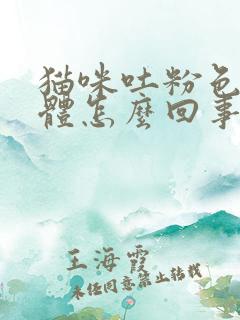 猫咪吐粉色
體怎麼回事
王海霞
未经同意禁止转载